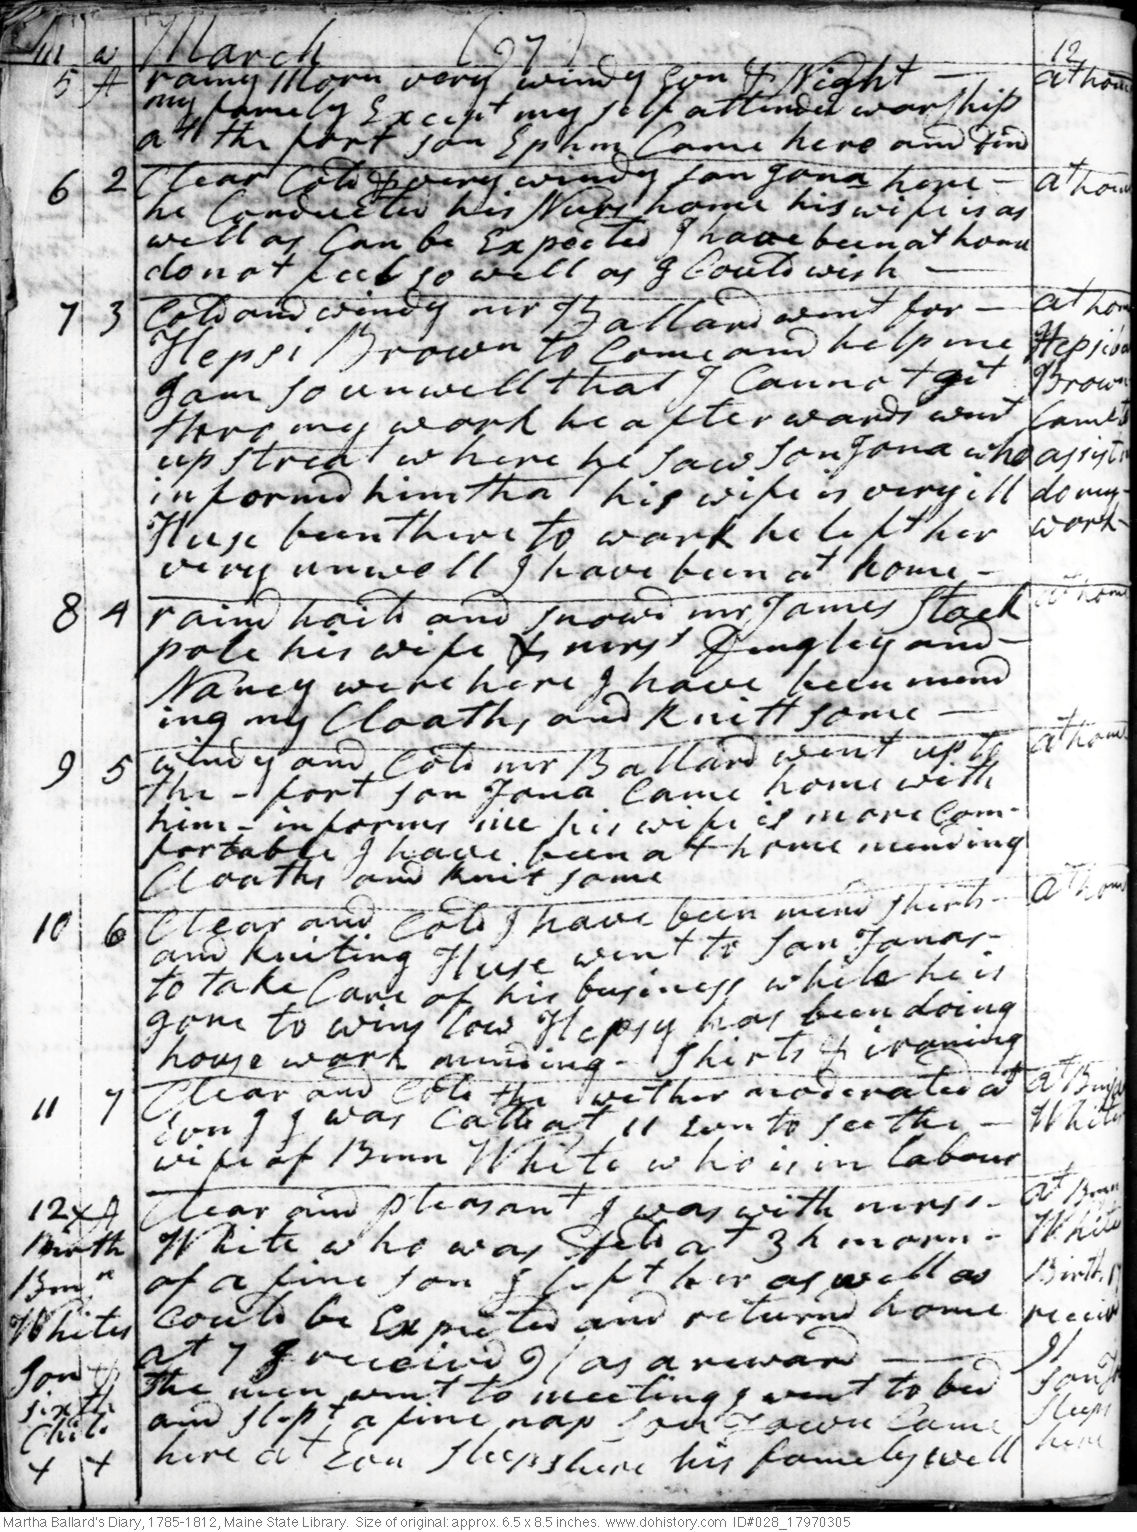 m w March (97) 12
5 A rainy Morn very windy Evn & Night — at home
my famely Except my self attended worship
at the fort son Ephm Came here and dind
6 2 Clear Cold & very windy son Jona here — at home
he Conducted his Nurs home his wife is as
well as Can be Expected I have been at home
do not feel so well as I Could wish —
7 3 Cold and windy mr Ballard went for — at home
Hepsi Brown to Come and help me Hepsiba
I am so unwell that I Cannot git Brown
thro my work he afterwards went Came to
up streat where he saw son Jona who assist
informd him that his wife is very ill do my
Huse been there to work he left her work
very unwell I have been at home —
8 4 raind haild and snowd mr James Stack at home
pole his wife & mrss Dingley and
Nancy were here I have been mend
ing my Cloaths and knitt some —
9 5 windy and Cold mr Ballard went up to at home
the - fort son Jona Came home with
him - informs me his wife is more Com-
fortable I have been at home mending
Cloaths and knit some
10 6 Clear and Cold I have been mend shirts - at home
and kniting Huse went to son Jonas -
to take Care of his business while he is
gone to wins low Hepsy has been doing
house work mending - shirts & ironing
11 7 Clear and Cold the wether moderated at at Bmn
Evng I was Calld at 11 Evn to see the — Whites
wife of Bmn White who is in Labour
12 x A Clear and pleasant I was with mrss - at Bmn
Birth White who was deld at 3 h morn - White
Bmn of a fine son I left her as well as Birth
Whites Could be Expected and returnd home receivd
Son & at 7 I receivd 9/ as a reward — 9/
sixth the men went to meeting I went to bed son
Child and slept a fine nap son Town Came sleeps
x x here at Evn sleeps here his famely well here
Martha Ballard's Diary, 1785-1812, Maine State Library. Size of original: approx. 6.5 x 8.5 inches. www.dohistory.com ID#028_17970305